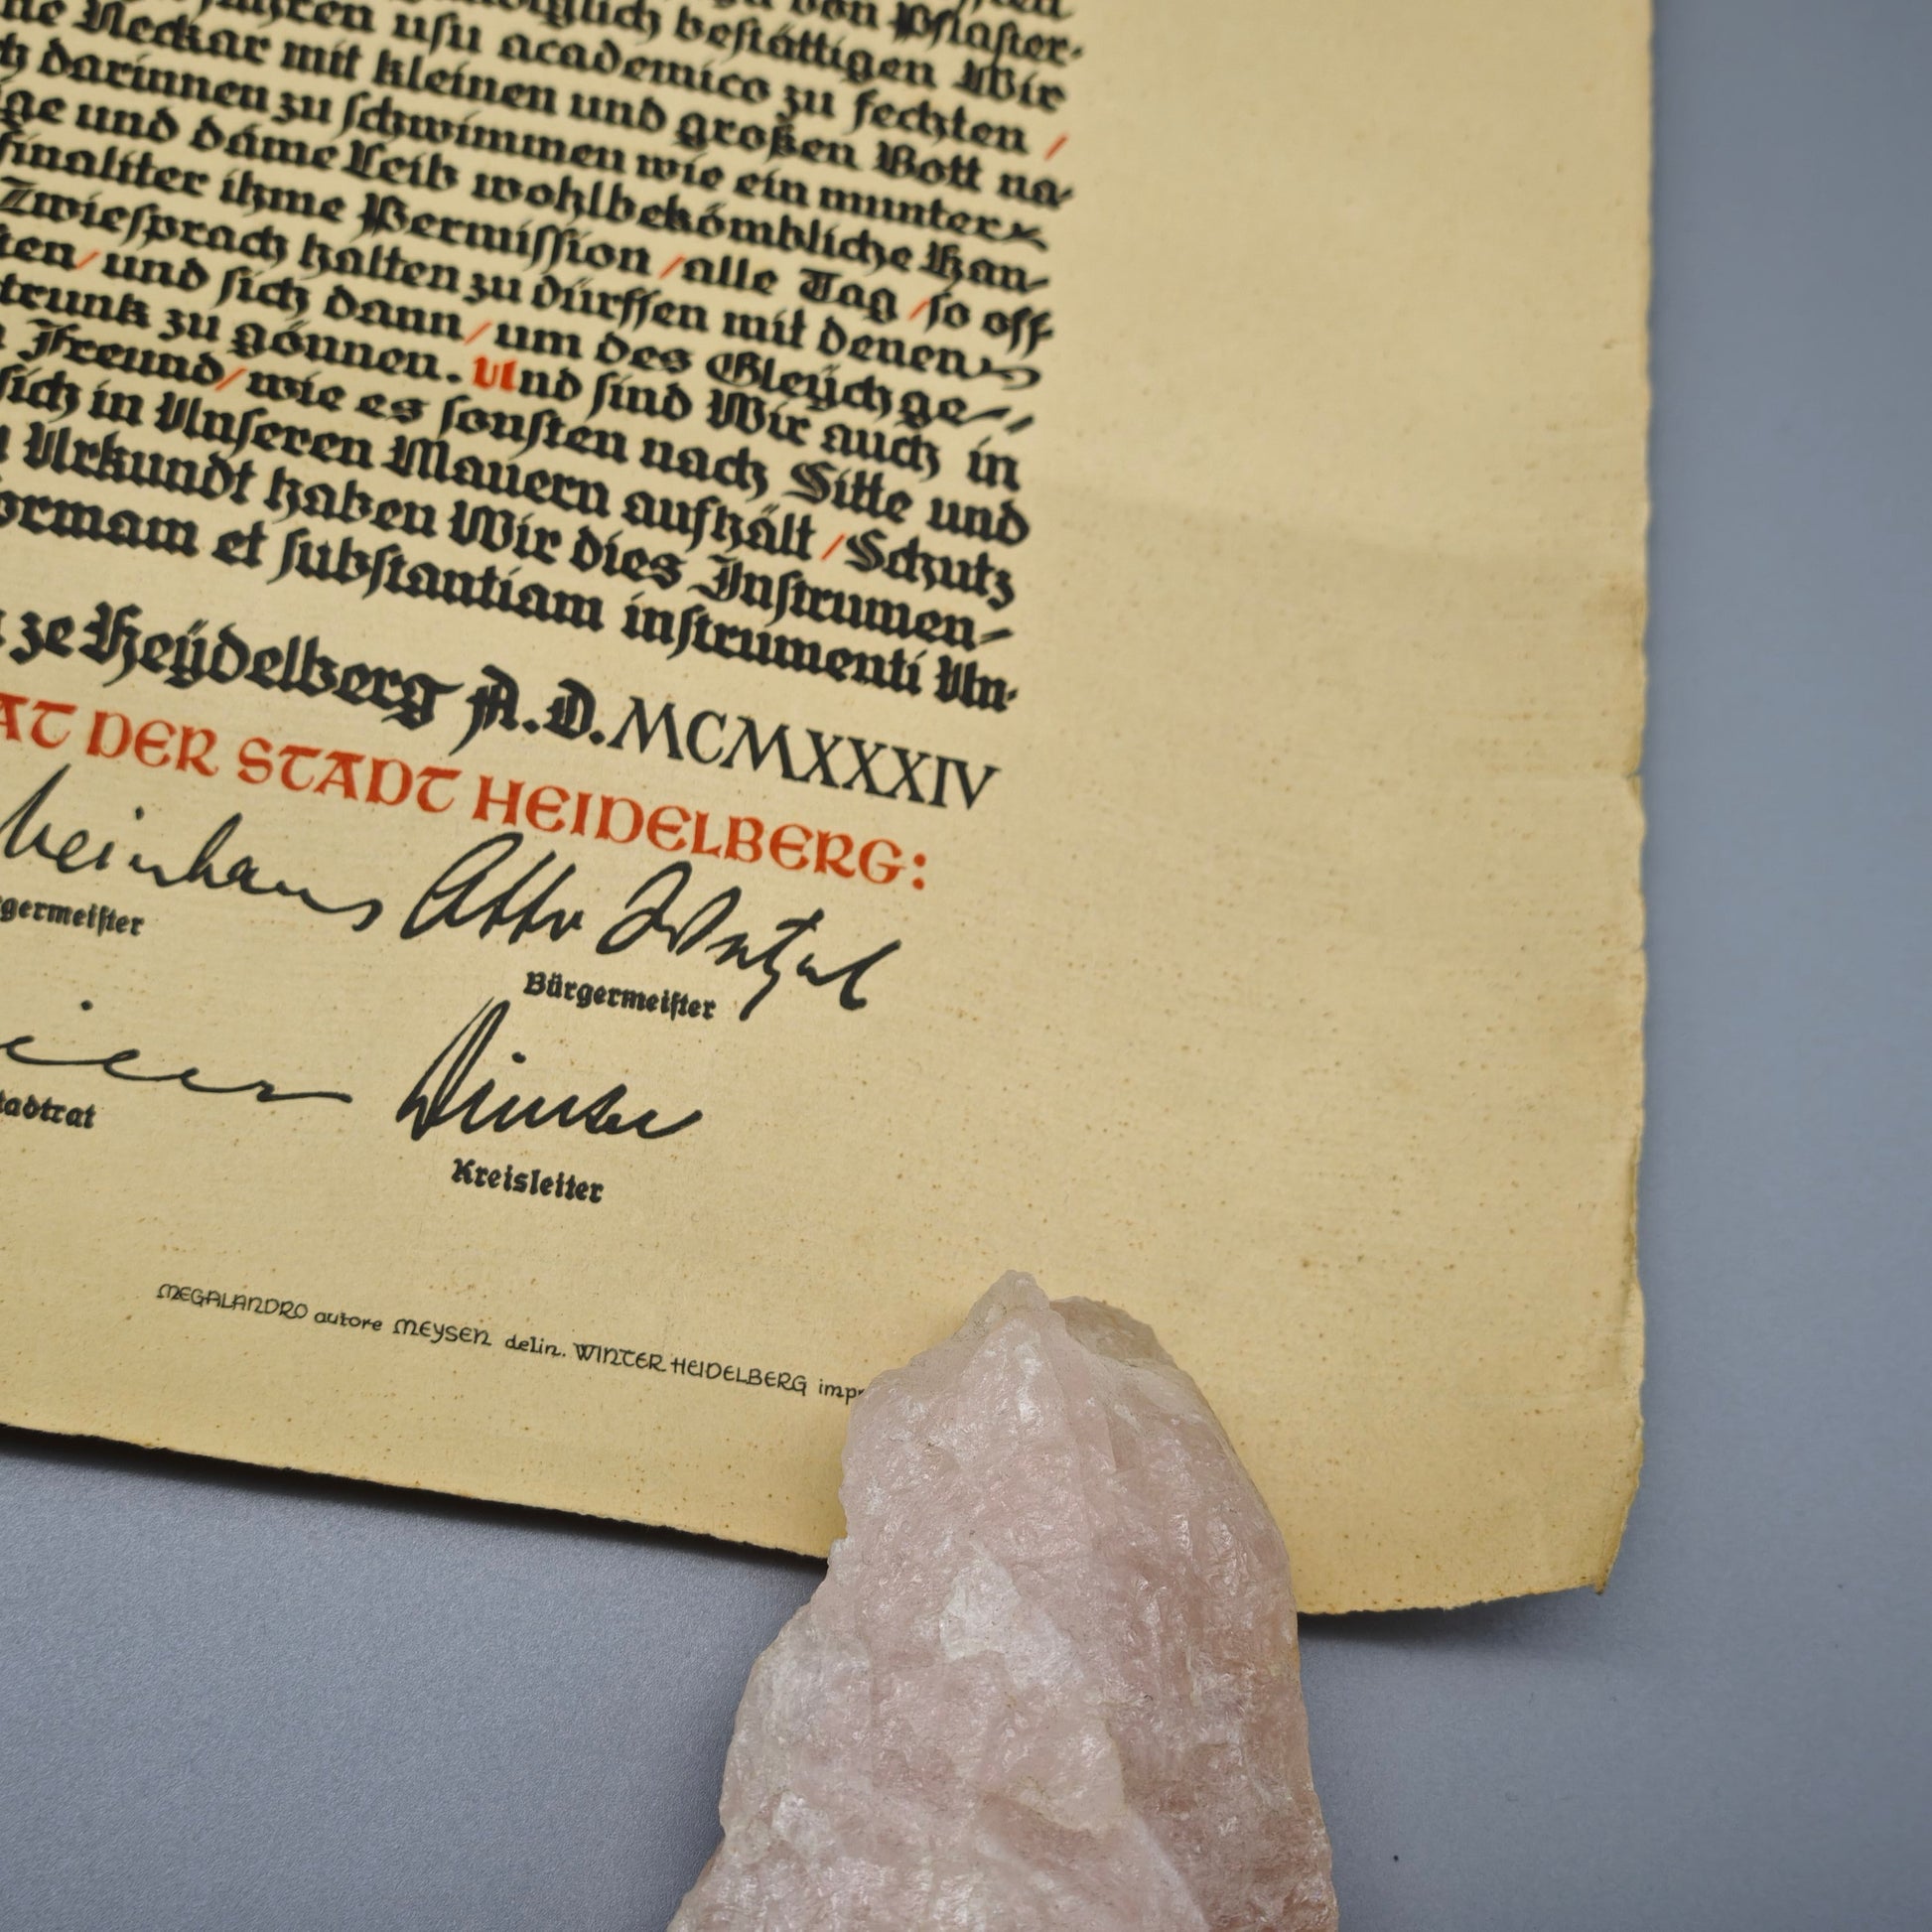 von Pflaster-
usu academico bestättigen Wir
Neckar mit kleinen zu fechten /
darinnen zu schwimmen und großen Bott na-
ge und dáme Leib wie ein munter
finaliter ihme wohlbekömbliche Han-
Zwiesprach Permission / alle Tag / so oft
ten / und sich halten zu dürffen mit denen
trunk zu gönnen. dann / um des Gleÿch ge-
Freund / wie es Und sind Wir auch in
sich in Unseren sonsten nach Sitte und
Urkundt haben Mauern aufhält / Schutz
ormam et Wir dies Instrumen-
substantiam instrumenti Un-
ze Heÿdelberg A.D. MCMXXXIV
AT DER STADT HEIDELBERG:
Neinhaus Otto Wetzel
germeister Bürgermeister
Dinser
tadtrat Kreisleiter
MEGALANDRO autore MEYSEN delin. WINTER HEIDELBERG impr